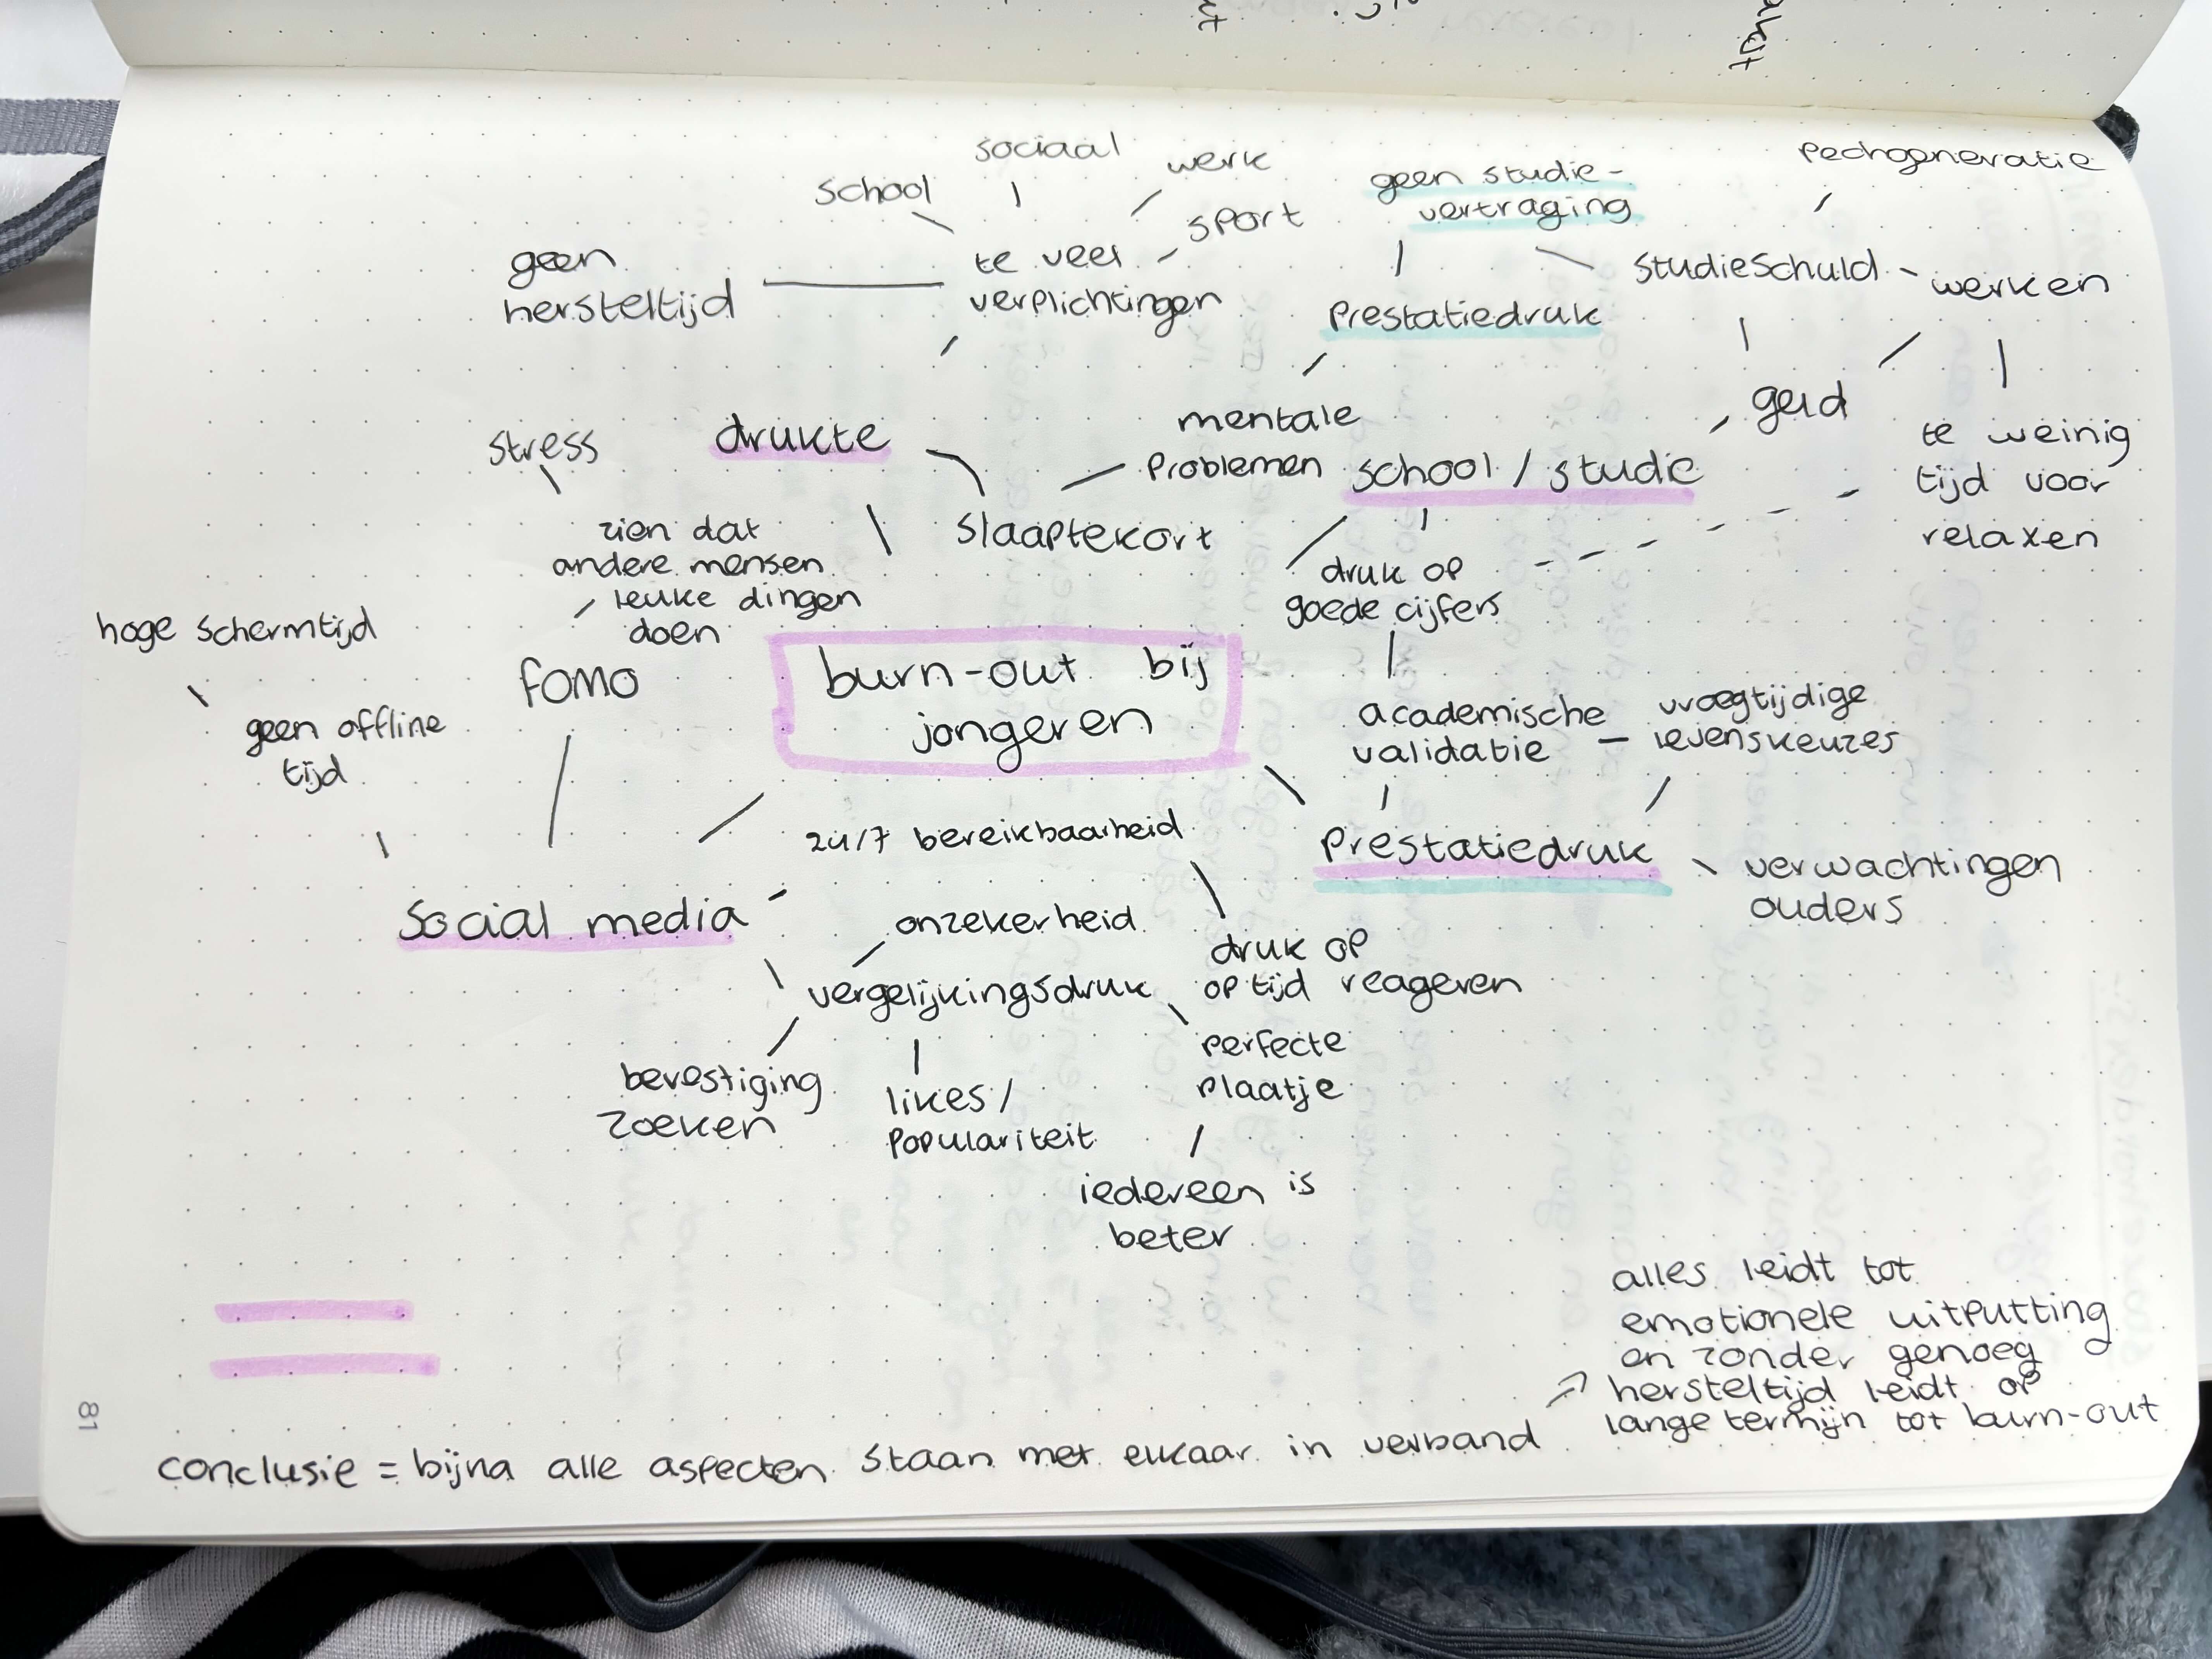 sociaal
werk
school
sport
geen studie-
vertraging
pechgeneratie
geen
hersteltijd
te veel
verplichtingen
prestatiedruk
studieschuld
werken
geld
te weinig
tijd voor
relaxen
stress
drukte
mentale
problemen
school / studie
slaaptekort
zien dat
andere mensen
leuke dingen
doen
druk op
goede cijfers
hoge schermtijd
fomo
burn-out bij
jongeren
geen offline
tijd
academische
validatie
vroegtijdige
levenskeuzes
24/7 bereikbaarheid
prestatiedruk
verwachtingen
ouders
social media
onzekerheid
druk op
op tijd reageren
vergelijkingsdruk
perfecte
plaatje
bevestiging
zoeken
likes/
populariteit
iedereen is
beter
alles leidt tot
emotionele uitputting
en zonder genoeg
hersteltijd leidt op
lange termijn tot burn-out
conclusie = bijna alle aspecten staan met elkaar in verband
81